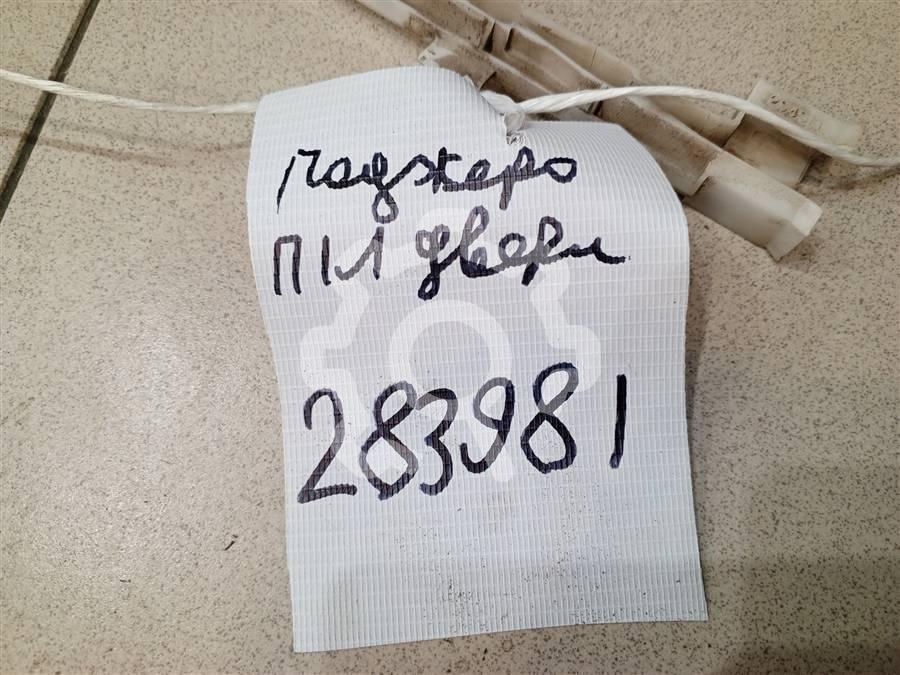 Паджеро
П/Л двери
283981